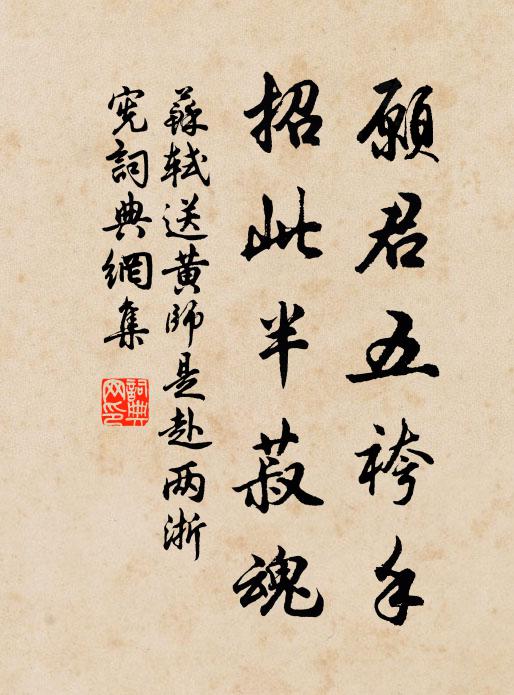 願君五袴手
招此半菽魂
蘇軾送黄師是赴两浙
宪詞典網集
詞典
网印